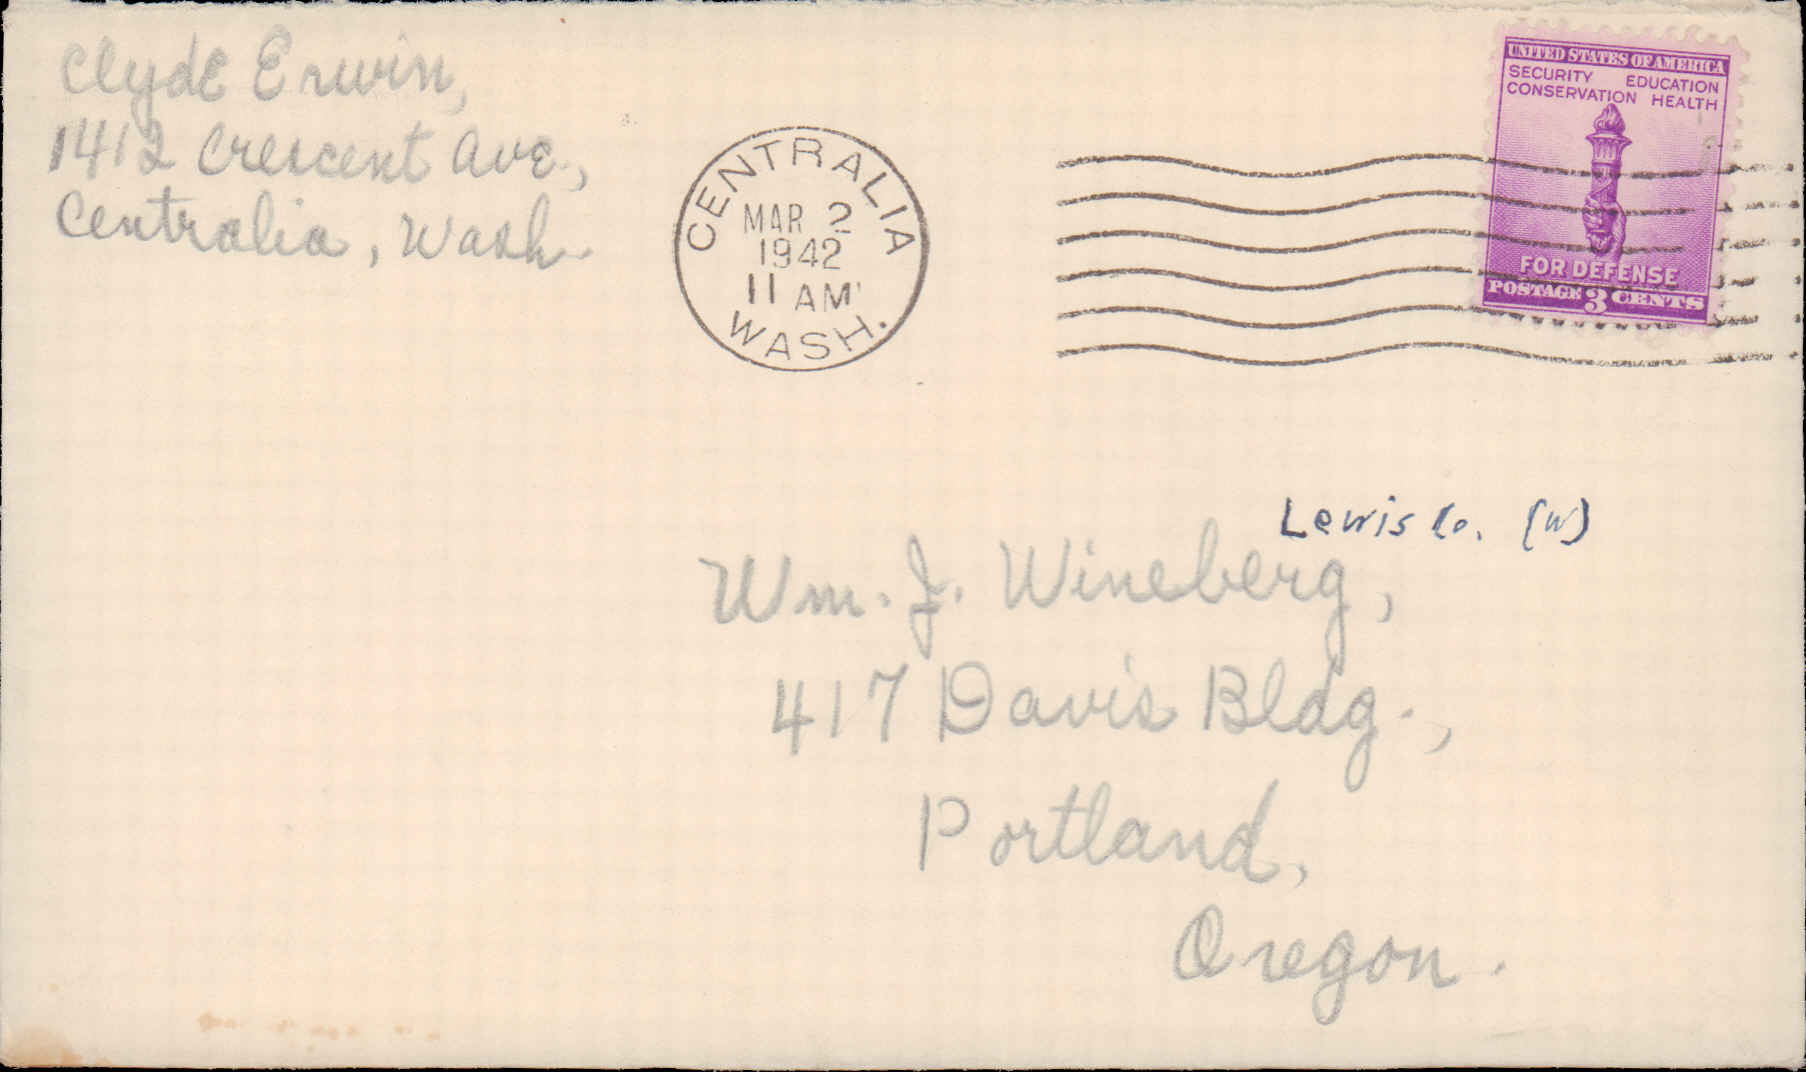 Clyde Erwin,
1412 Crescent Ave.,
Centralia, Wash.
CENTRALIA
MAR 2
1942
11 AM
WASH.
UNITED STATES OF AMERICA
SECURITY EDUCATION
CONSERVATION HEALTH
FOR DEFENSE
POSTAGE 3 CENTS
Lewis Co. (W)
Wm. J. Wineberg,
417 Davis Bldg.,
Portland,
Oregon.